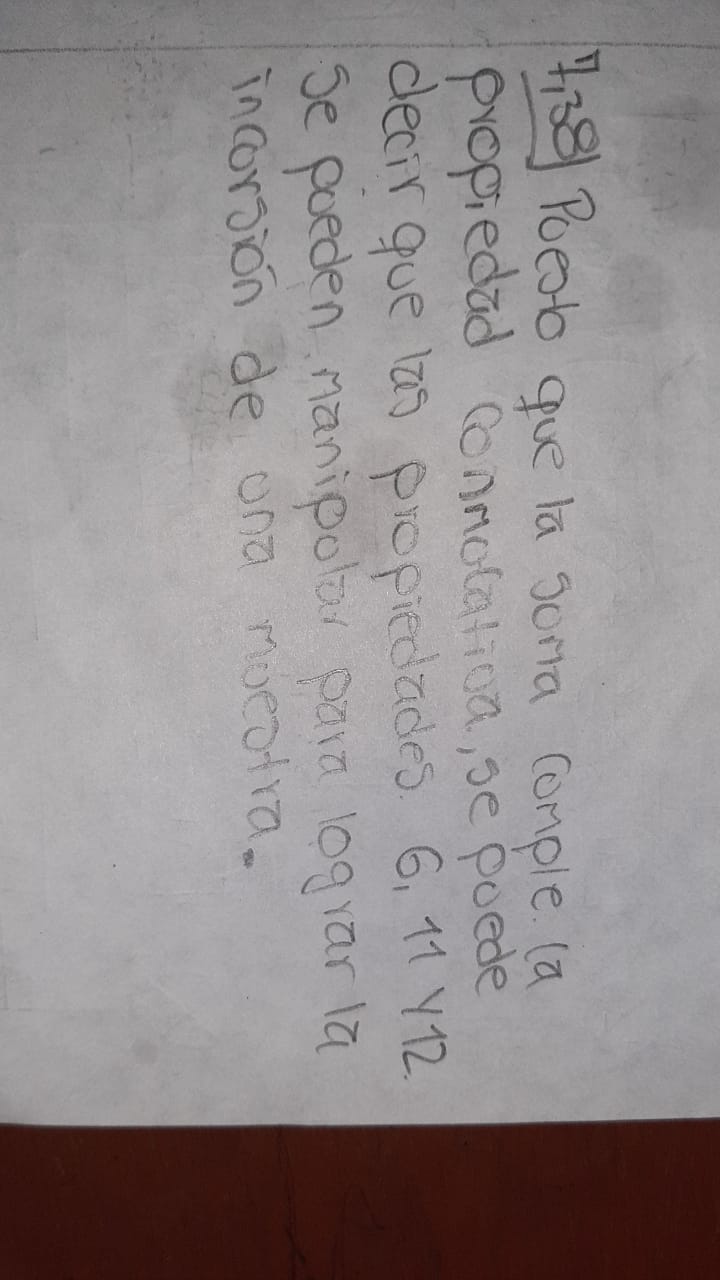 7,38) Puesto que la suma cumple la
propiedad conmutativa, se puede
decir que las propiedades 6, 11 y 12.
Se pueden manipular para lograr la
incursión de una muestra.